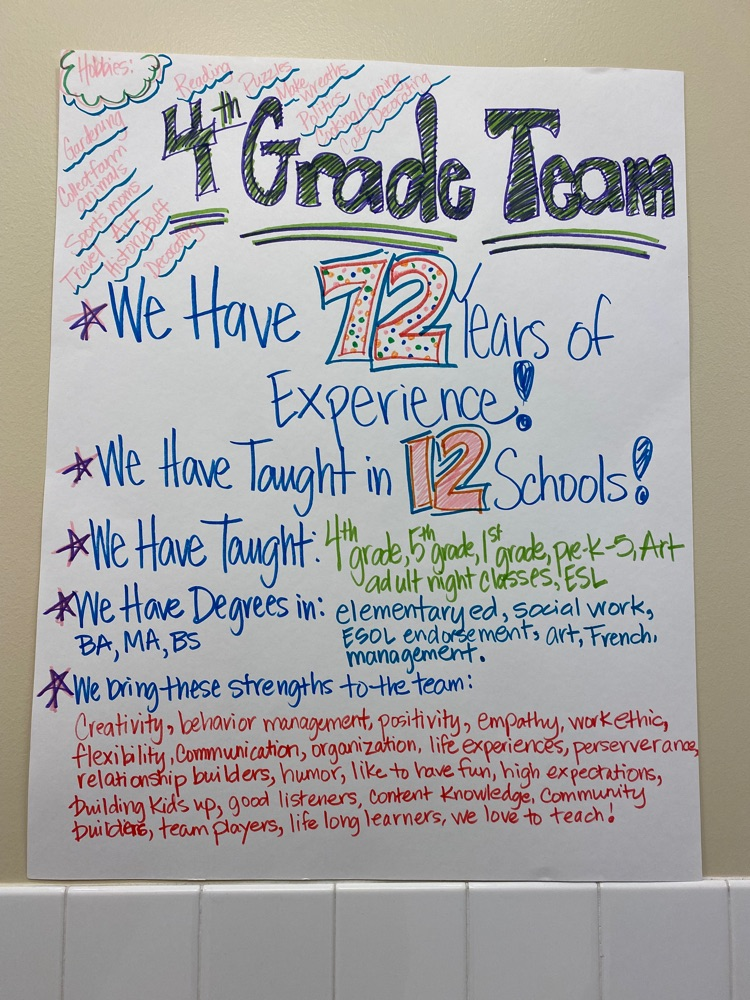 Hobbies:
Reading
Puzzles
Make Wreaths
Politics
Cooking/Canning
Cake Decorating
Gardening
Collect farm
animals
Sports moms
Travel Art
History Buff
Decorating
4th Grade Team
We Have 72 Years of
Experience!
We Have Taught in 12 Schools!
We Have Taught: 4th grade, 5th grade, 1st grade, pre-k-5, Art
adult night classes, ESL
We Have Degrees in: elementary ed, social work,
BA, MA, BS ESOL endorsement, art, French,
management.
We bring these strengths to the team:
Creativity, behavior management, positivity, empathy, work ethic,
flexibility, communication, organization, life experiences, perserverance,
relationship builders, humor, like to have fun, high expectations,
building kids up, good listeners, content knowledge, community
builders, team players, life long learners, we love to teach!